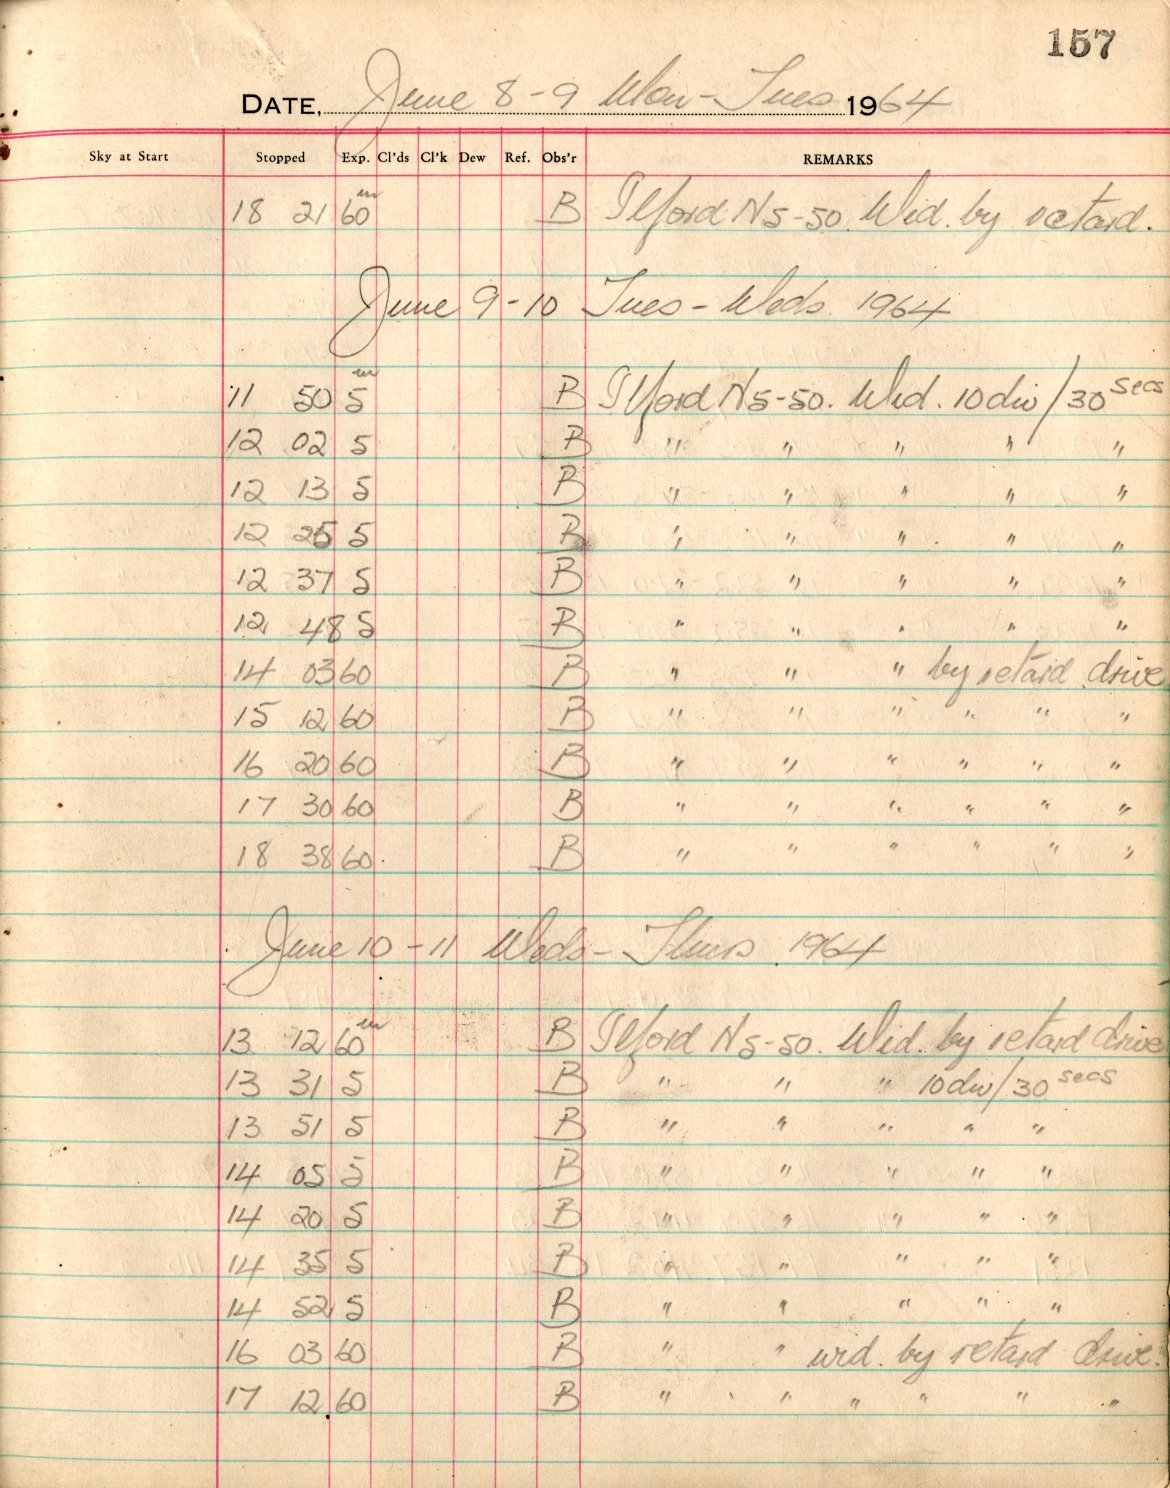 157
DATE, June 8-9 Mon-Tues 1964
Sky at Start Stopped Exp. Cl'ds Cl'k Dew Ref. Obs'r REMARKS
18 21 60m B Ilford N5-50. Wid. by retard.
June 9-10 Tues-Weds 1964
11 50 5m B Ilford N5-50. Wid. 10 div/30 secs
12 02 5 B " " " " "
12 13 5 B " " " " "
12 25 5 B " " " " "
12 37 5 B " " " " "
12 48 5 B " " " " "
14 03 60 B " " " by retard drive
15 12 60 B " " " " " "
16 20 60 B " " " " " "
17 30 60 B " " " " " "
18 38 60. B " " " " " "
June 10-11 Weds-Thurs 1964
13 12 60m B Ilford N5-50. Wid. by retard drive
13 31 5 B " " " 10 div/30 secs
13 51 5 B " " " " "
14 05 5 B " " " " "
14 20 5 B " " " " "
14 35 5 B " " " " "
14 52 5 B " " " " "
16 03 60 B " " wid. by retard drive.
17 12 60 B " " " " " "